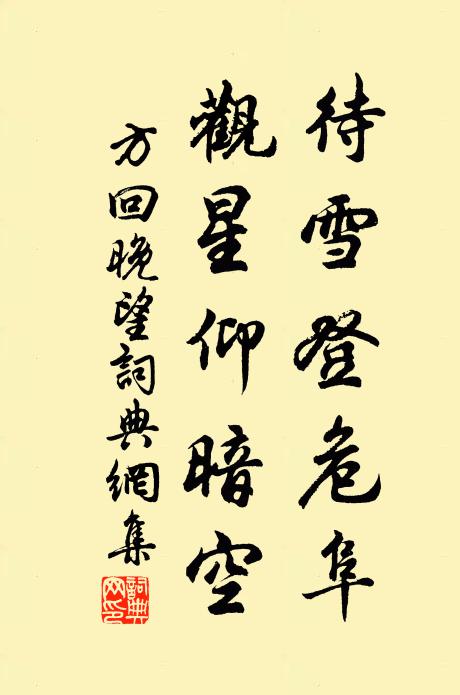 待雪登危阜
觀星仰暗空
方回晚望詞典網集
詞典网印